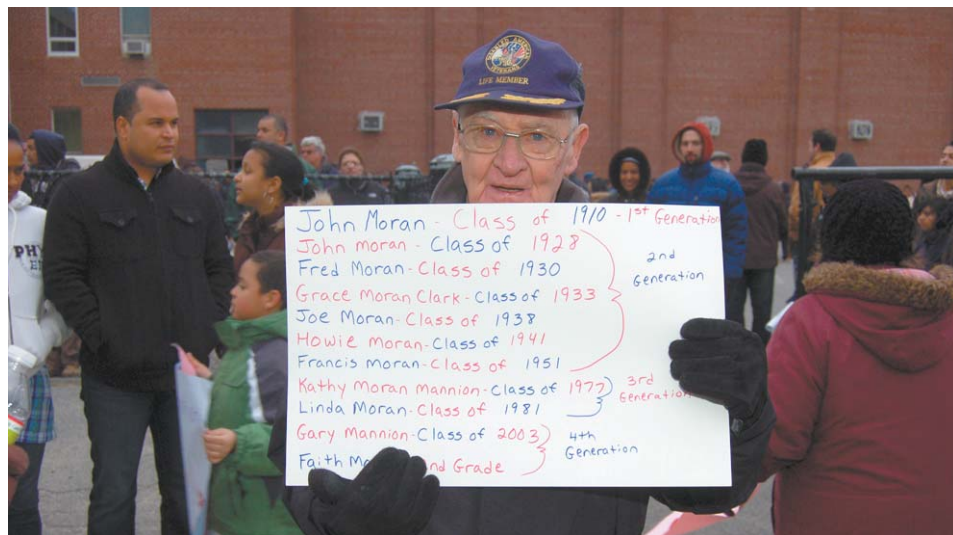 DISABLED AMERICAN
VETERANS
LIFE MEMBER
John Moran - Class of 1910 - 1st Generation
John moran - Class of 1928
Fred Moran - Class of 1930
Grace Moran Clark - Class of 1933
Joe Moran - Class of 1938
Howie Moran - Class of 1941
Francis Moran - Class of 1951
2nd
Generation
Kathy Moran Mannion - Class of 1977
Linda Moran - Class of 1981
3rd
Generation
Gary Mannion - Class of 2003
Faith Grade
4th
Generation
PHY